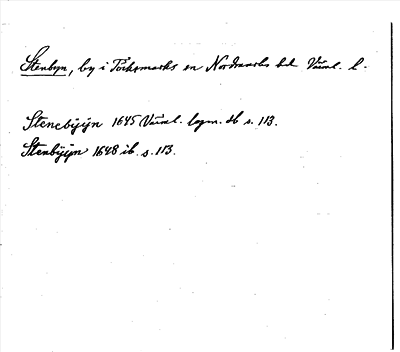 Stenbyn, by i Töcksmarks sn Nordmarks hd Värml. l.
Stenebÿijn 1645 Värml. lagm. db s. 113.
Stenbÿijn 1648 ib. s. 113.